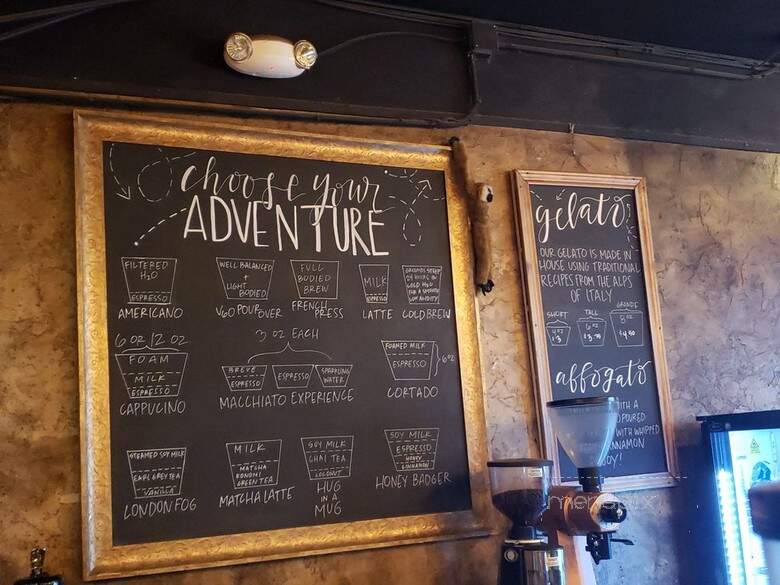 choose your
ADVENTURE
FILTERED
H2O
ESPRESSO
AMERICANO
WELL BALANCED
LIGHT
BODIED
V60 POUR OVER
FULL
BODIED
BREW
FRENCH
PRESS
MILK
ESPRESSO
LATTE
GROUNDS STEEP
24 HOURS IN
COLD H2O
FOR A SMOOTH
LOW ACIDITY
COLD BREW
6 OZ 12 OZ
FOAM
MILK
ESPRESSO
CAPPUCINO
3 OZ EACH
BREVE
ESPRESSO
ESPRESSO
SPARKLING
WATER
MACCHIATO EXPERIENCE
FOAMED MILK
ESPRESSO
6 OZ
CORTADO
STEAMED SOY MILK
EARL GREY TEA
VANILLA
LONDON FOG
MILK
MATCHA
KONOMI
GREEN TEA
MATCHA LATTE
SOY MILK
CHAI TEA
COCONUT
HUG
IN A
MUG
SOY MILK
ESPRESSO
HONEY
CINNAMON
HONEY BADGER
gelato
OUR GELATO IS MADE IN
HOUSE USING TRADITIONAL
RECIPES FROM THE ALPS
OF ITALY
SHORT
4 OZ
$3
TALL
6 OZ
GRANDE
8 OZ
affogato
WITH A
POURED
WITH WHIPPED
CINNAMON
menupix